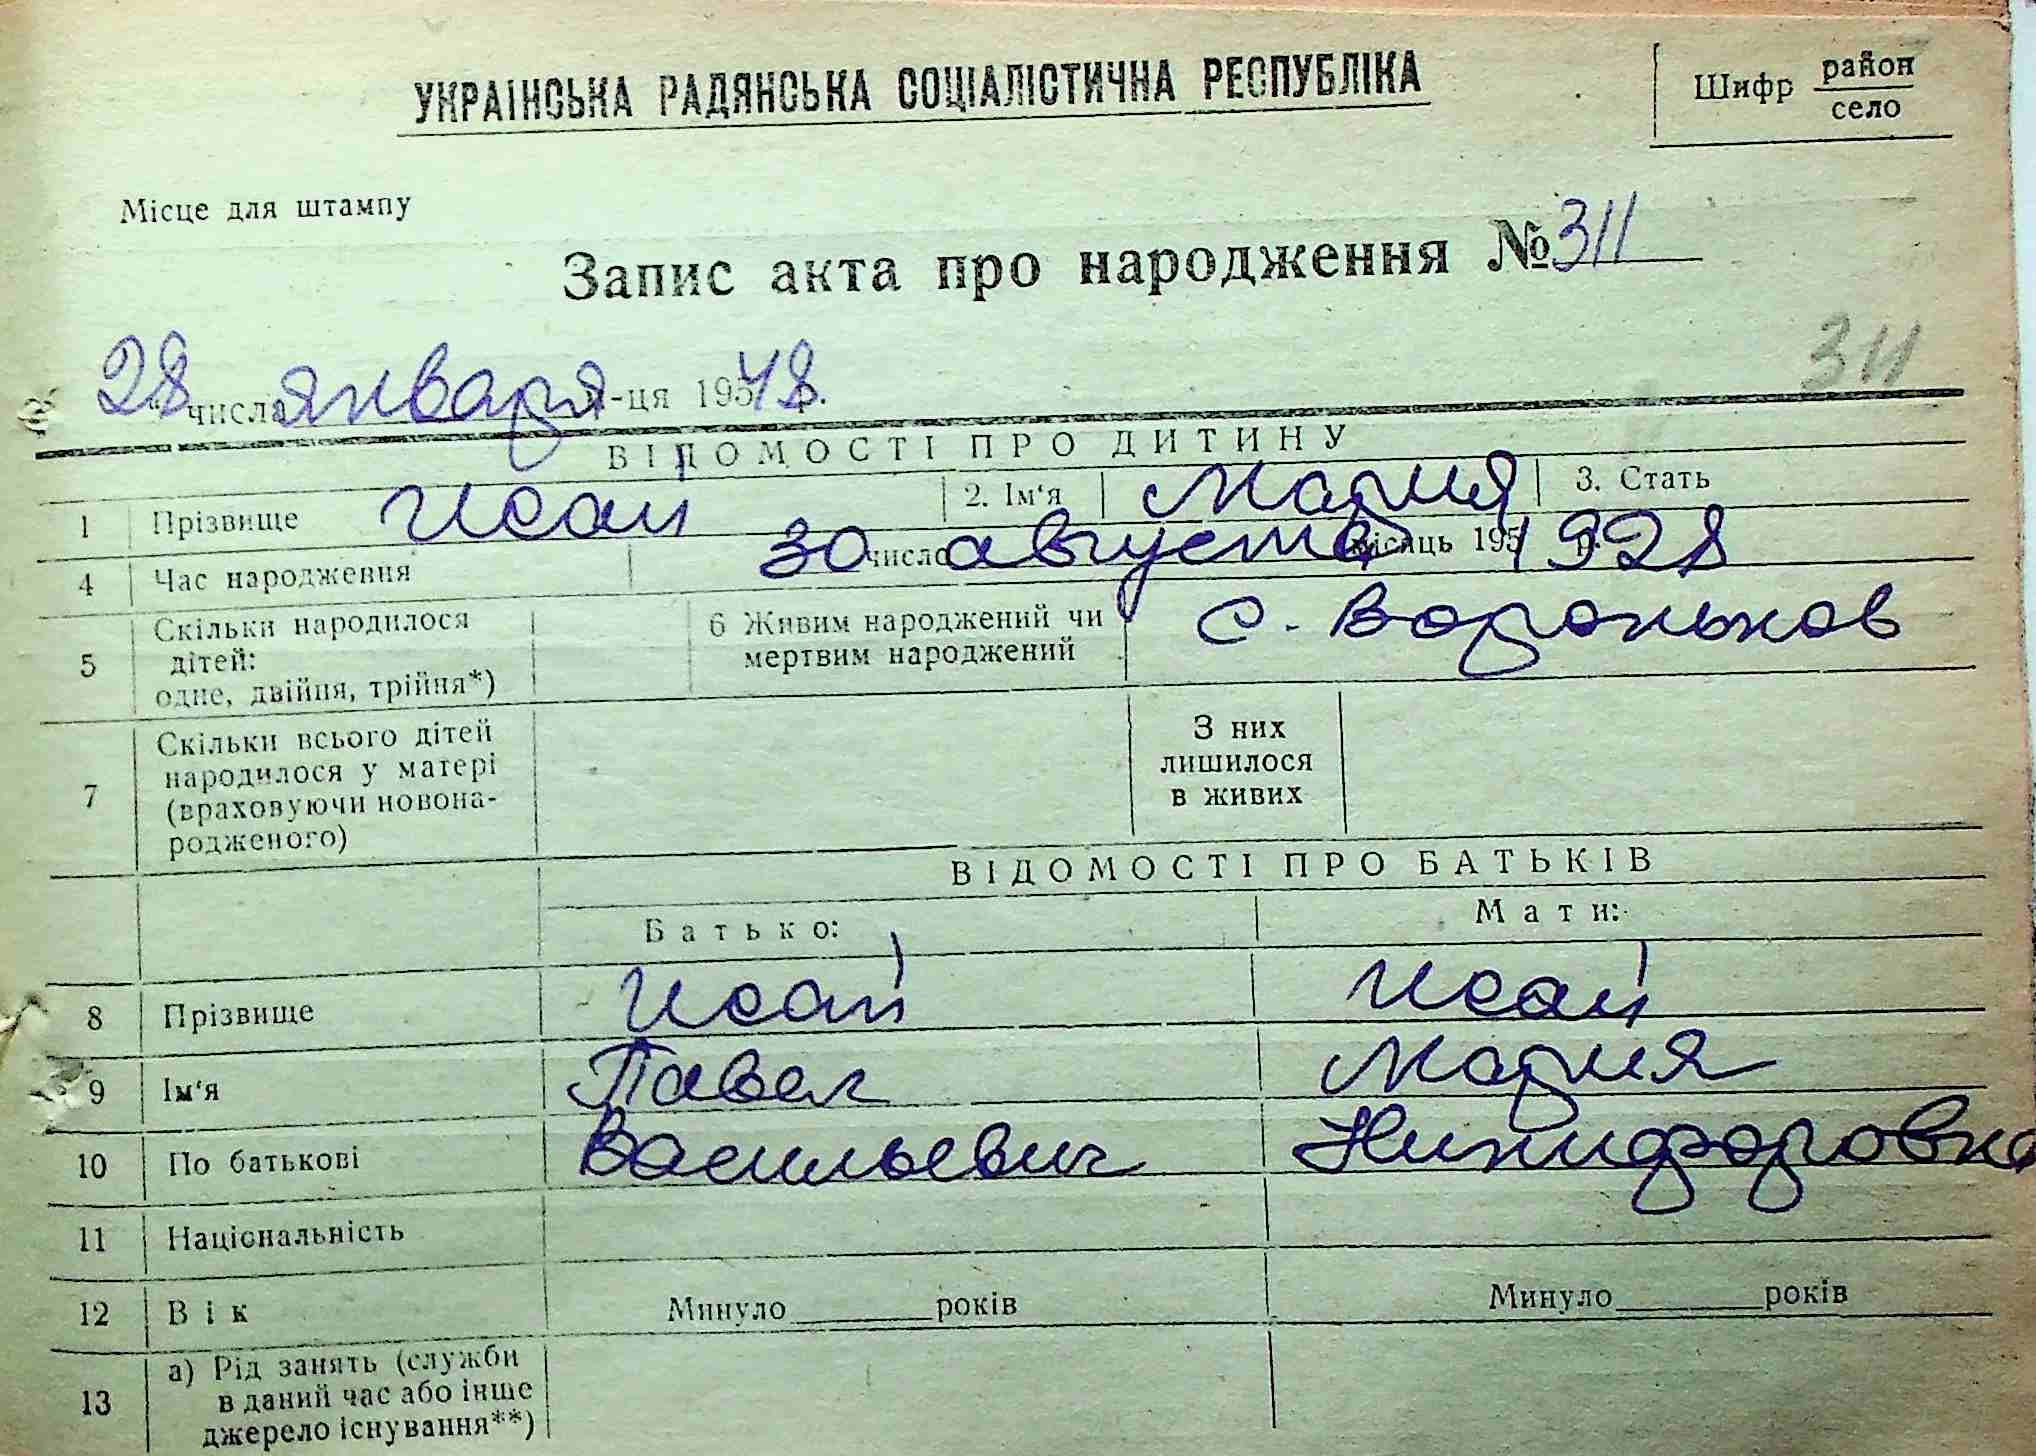 УКРАЇНСЬКА РАДЯНСЬКА СОЦІАЛІСТИЧНА РЕСПУБЛІКА
Шифр район
село
Місце для штампу
Запис акта про народження № 311
311
28 числа января м-ця 195 48 р.
ВІДОМОСТІ ПРО ДИТИНУ
1 Прізвище Исай 2. Ім‘я Мария 3. Стать
4 Час народження 30 число августа місяць 195 1928 р.
5 Скільки народилося
дітей:
одне, двійня, трійня*)
6 Живим народжений чи
мертвим народжений
с. Вороньков
7 Скільки всього дітей
народилося у матері
(враховуючи новона-
родженого)
З них
лишилося
в живих
ВІДОМОСТІ ПРО БАТЬКІВ
Батько: Мати:
8 Прізвище Исай Исай
9 Ім‘я Павел Мария
10 По батькові Васильевич Никифоровна
11 Національність
12 Вік Минуло років Минуло років
13 а) Рід занять (служби
в даний час або інше
джерело існування**)